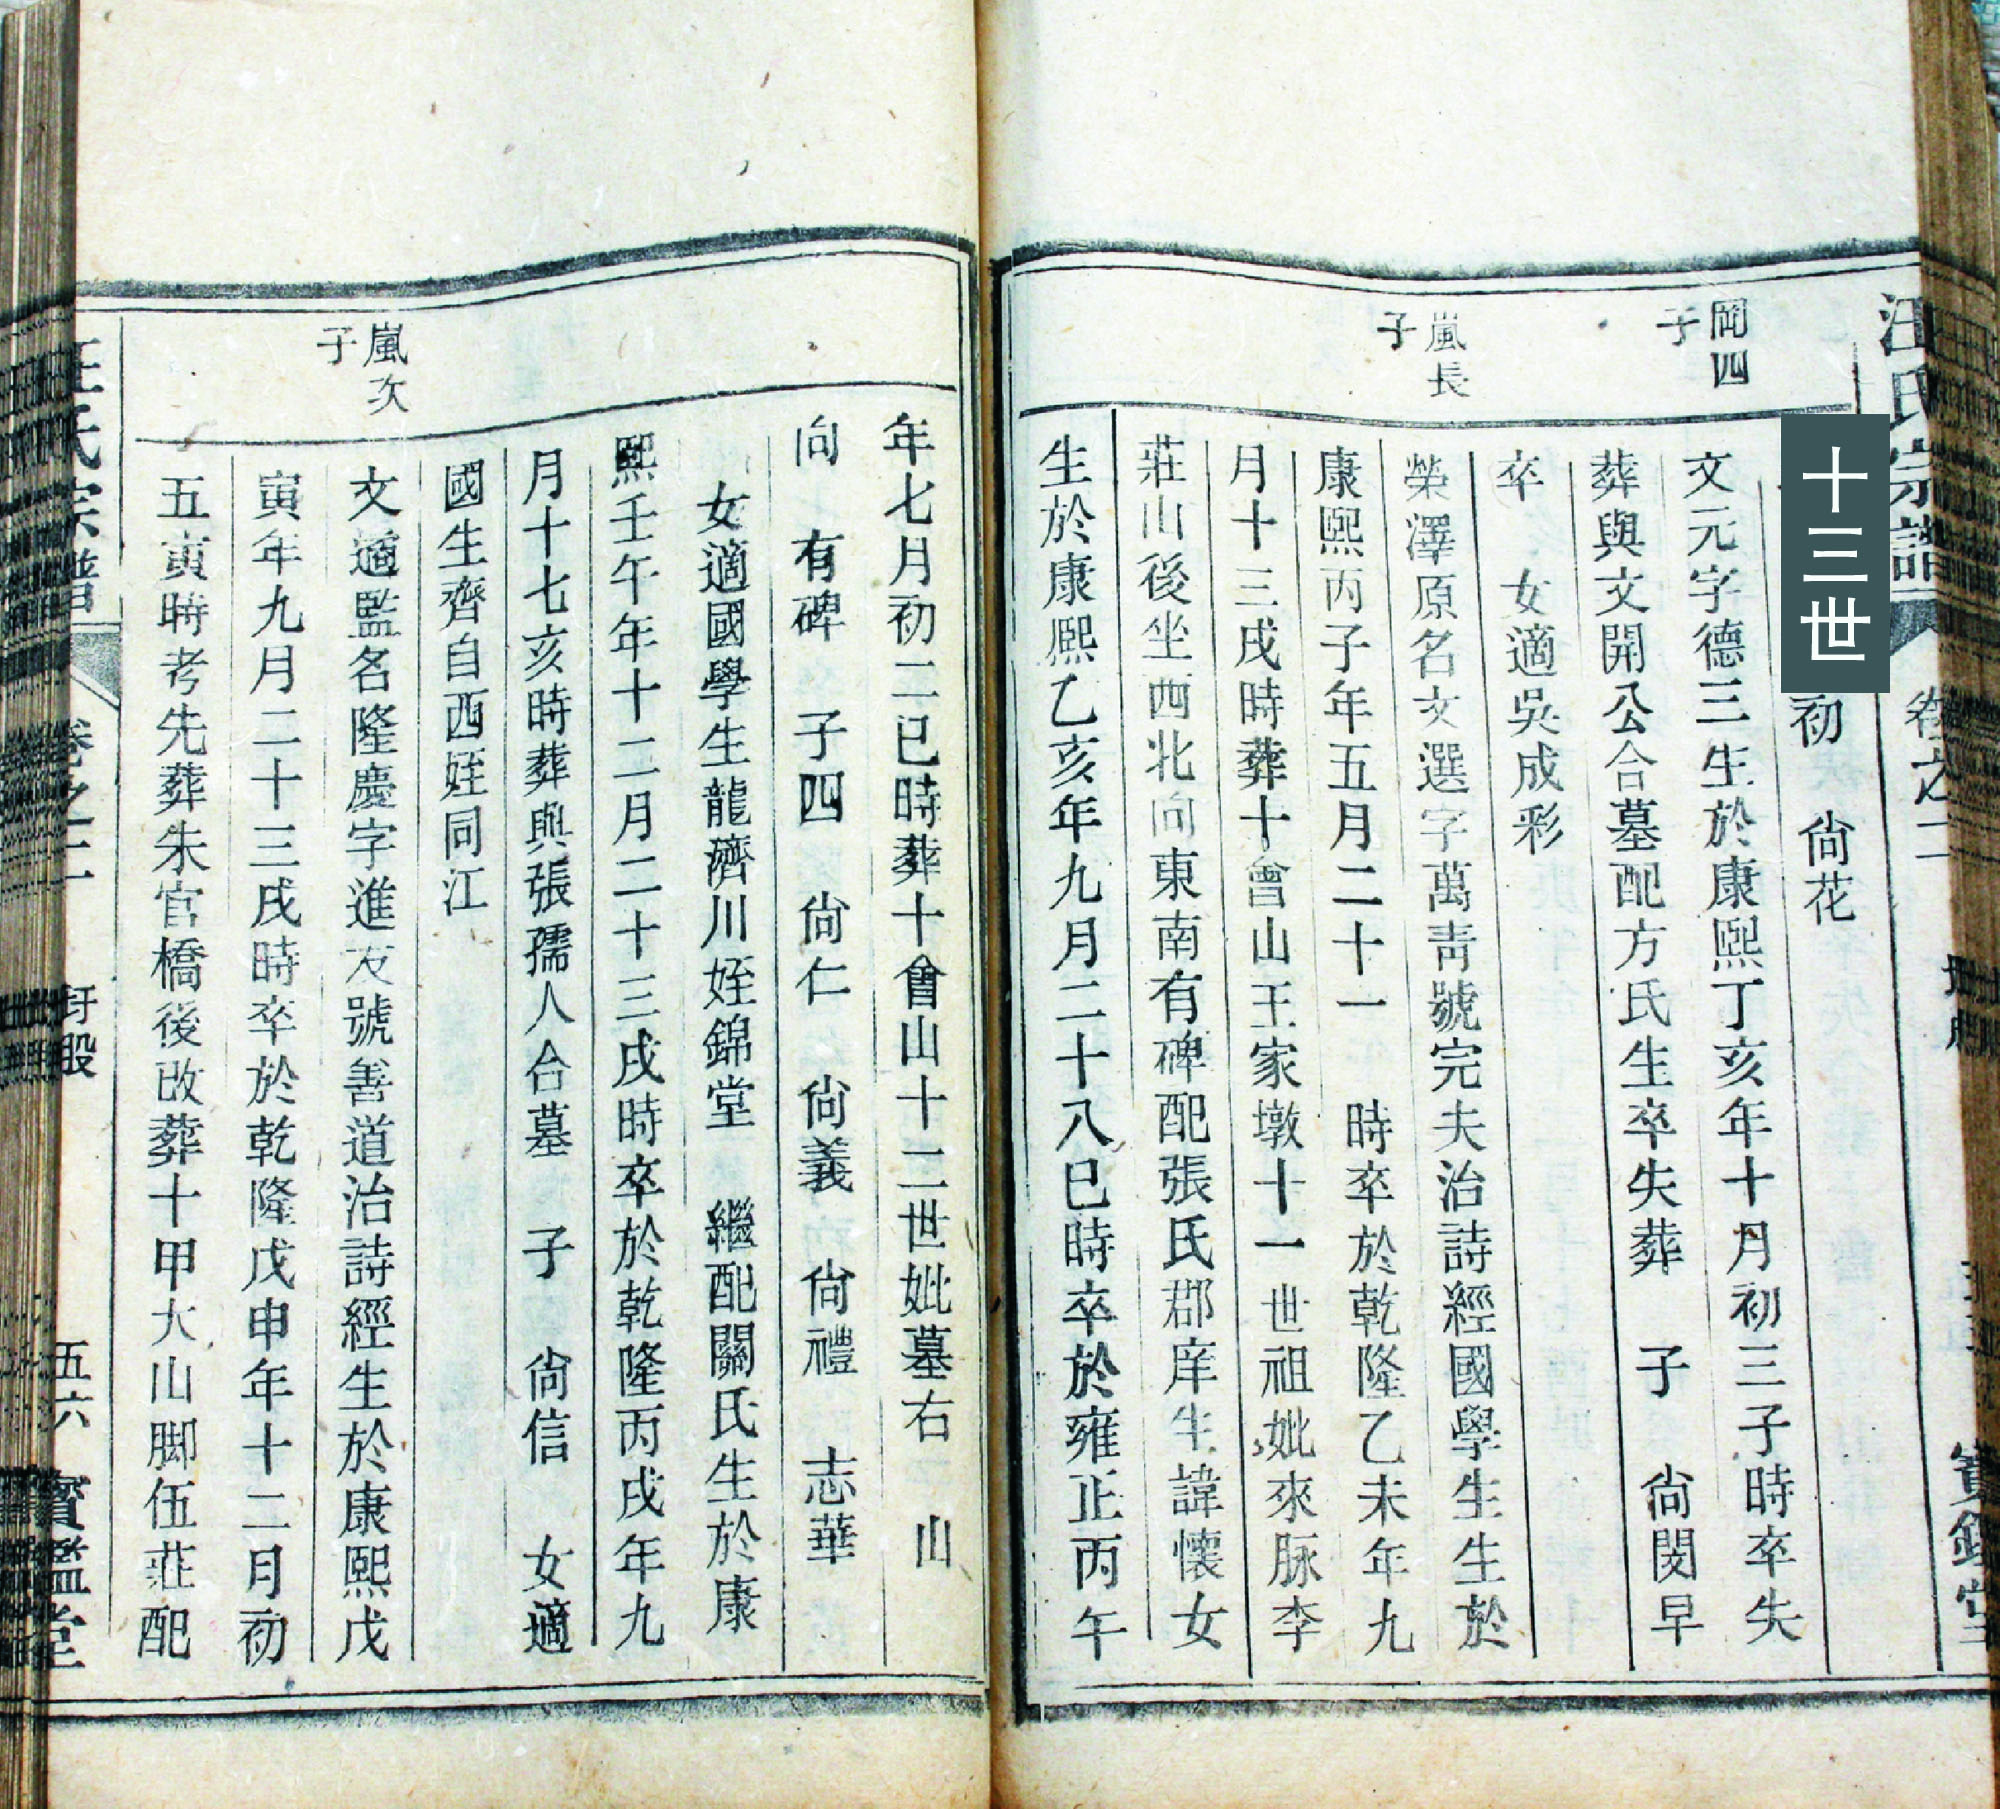 汪氏宗譜
卷之二
寶鑑堂
十三世
初 尙花
岡四
子
文元字德三生於康熙丁亥年十月初三子時卒失
葬與文開公合墓配方氏生卒失葬 子 尙閔早
卒 女適吳成彩
嵐長
子
榮澤原名文選字萬靑號完夫治詩經國學生生於
康熙丙子年五月二十一 時卒於乾隆乙未年九
月十三戌時葬十會山王家墩十一世祖妣來脉李
莊山後坐西北向東南有碑配張氏郡庠生諱懷女
生於康熙乙亥年九月二十八巳時卒於雍正丙午
年七月初二巳時葬十會山十二世妣墓右 山
向 有碑 子四 尙仁 尙義 尙禮 志華
女適國學生龍濟川姪錦堂 繼配關氏生於康
熙壬午年十二月二十三戌時卒於乾隆丙戌年九
月十七亥時葬與張孺人合墓 子 尙信 女適
國生齊自西姪同江
嵐次
子
文適監名隆慶字進友號善道治詩經生於康熙戊
寅年九月二十三戌時卒於乾隆戊申年十二月初
五寅時考先葬朱官橋後改葬十甲大山脚伍莊配
汪氏宗譜
卷之二
五六
寶鑑堂